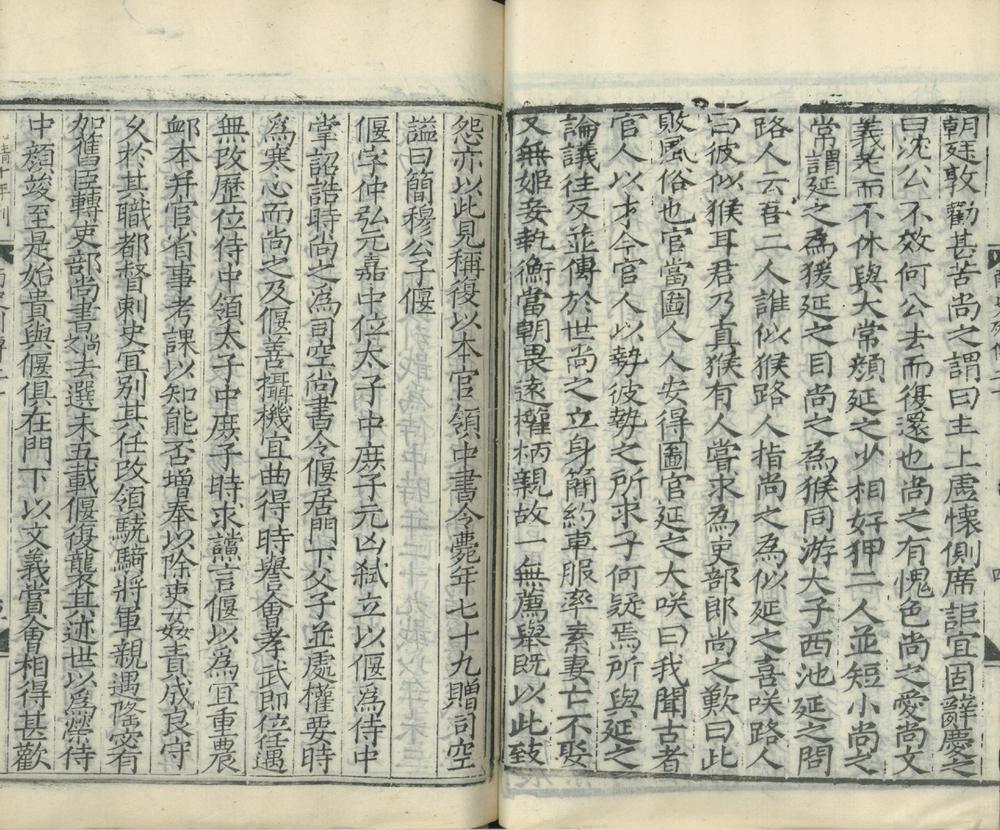 朝廷敦勸甚苦尚之謂曰主上虚懷側席詎宜固辭慶之
曰沈公不效何公去而復還也尚之有愧色尚之愛尚文
義老而不休與大常顔延之少相好狎二人並短小尚之
常謂延之為猨延之目尚之為猴同游大子西池延之問
路人云吾二人誰似猴路人指尚之為似延之喜咲路人
曰彼似猴耳君乃真猴有人嘗求為吏部郎尚之歎曰此
敗風俗也官當圖人人安得圖官延之大咲曰我聞古者
官人以才今官人以勢彼勢之所求子何疑焉所與延之
論議往反並傳於世尚之立身簡約車服率素妻亡不娶
又無姬妾執衡當朝畏遠權柄親故一無薦舉既以此致
怨亦以此見稱復以本官領中書令薨年七十九贈司空
謚曰簡穆公子偃
偃字仲弘元嘉中位太子中庶子元凶弑立以偃為侍中
掌詔誥時尚之為司空尚書令偃居門下父子並處權要時
為寒心而尚之及偃善攝機宜曲得時譽會孝武即位任遇
無改歷位侍中領太子中庶子時求讜言偃以為宜重農
䘏本并官省事考課以知能否增奉以除吏姦責成良守
久於其職都督刺史宜別其任改領驍騎將軍親遇隆密有
加舊臣轉吏部尚書尚之去選未五載偃復襲其迹世以為榮侍
中顔竣至是始貴與偃俱在門下以文義賞會相得甚歡